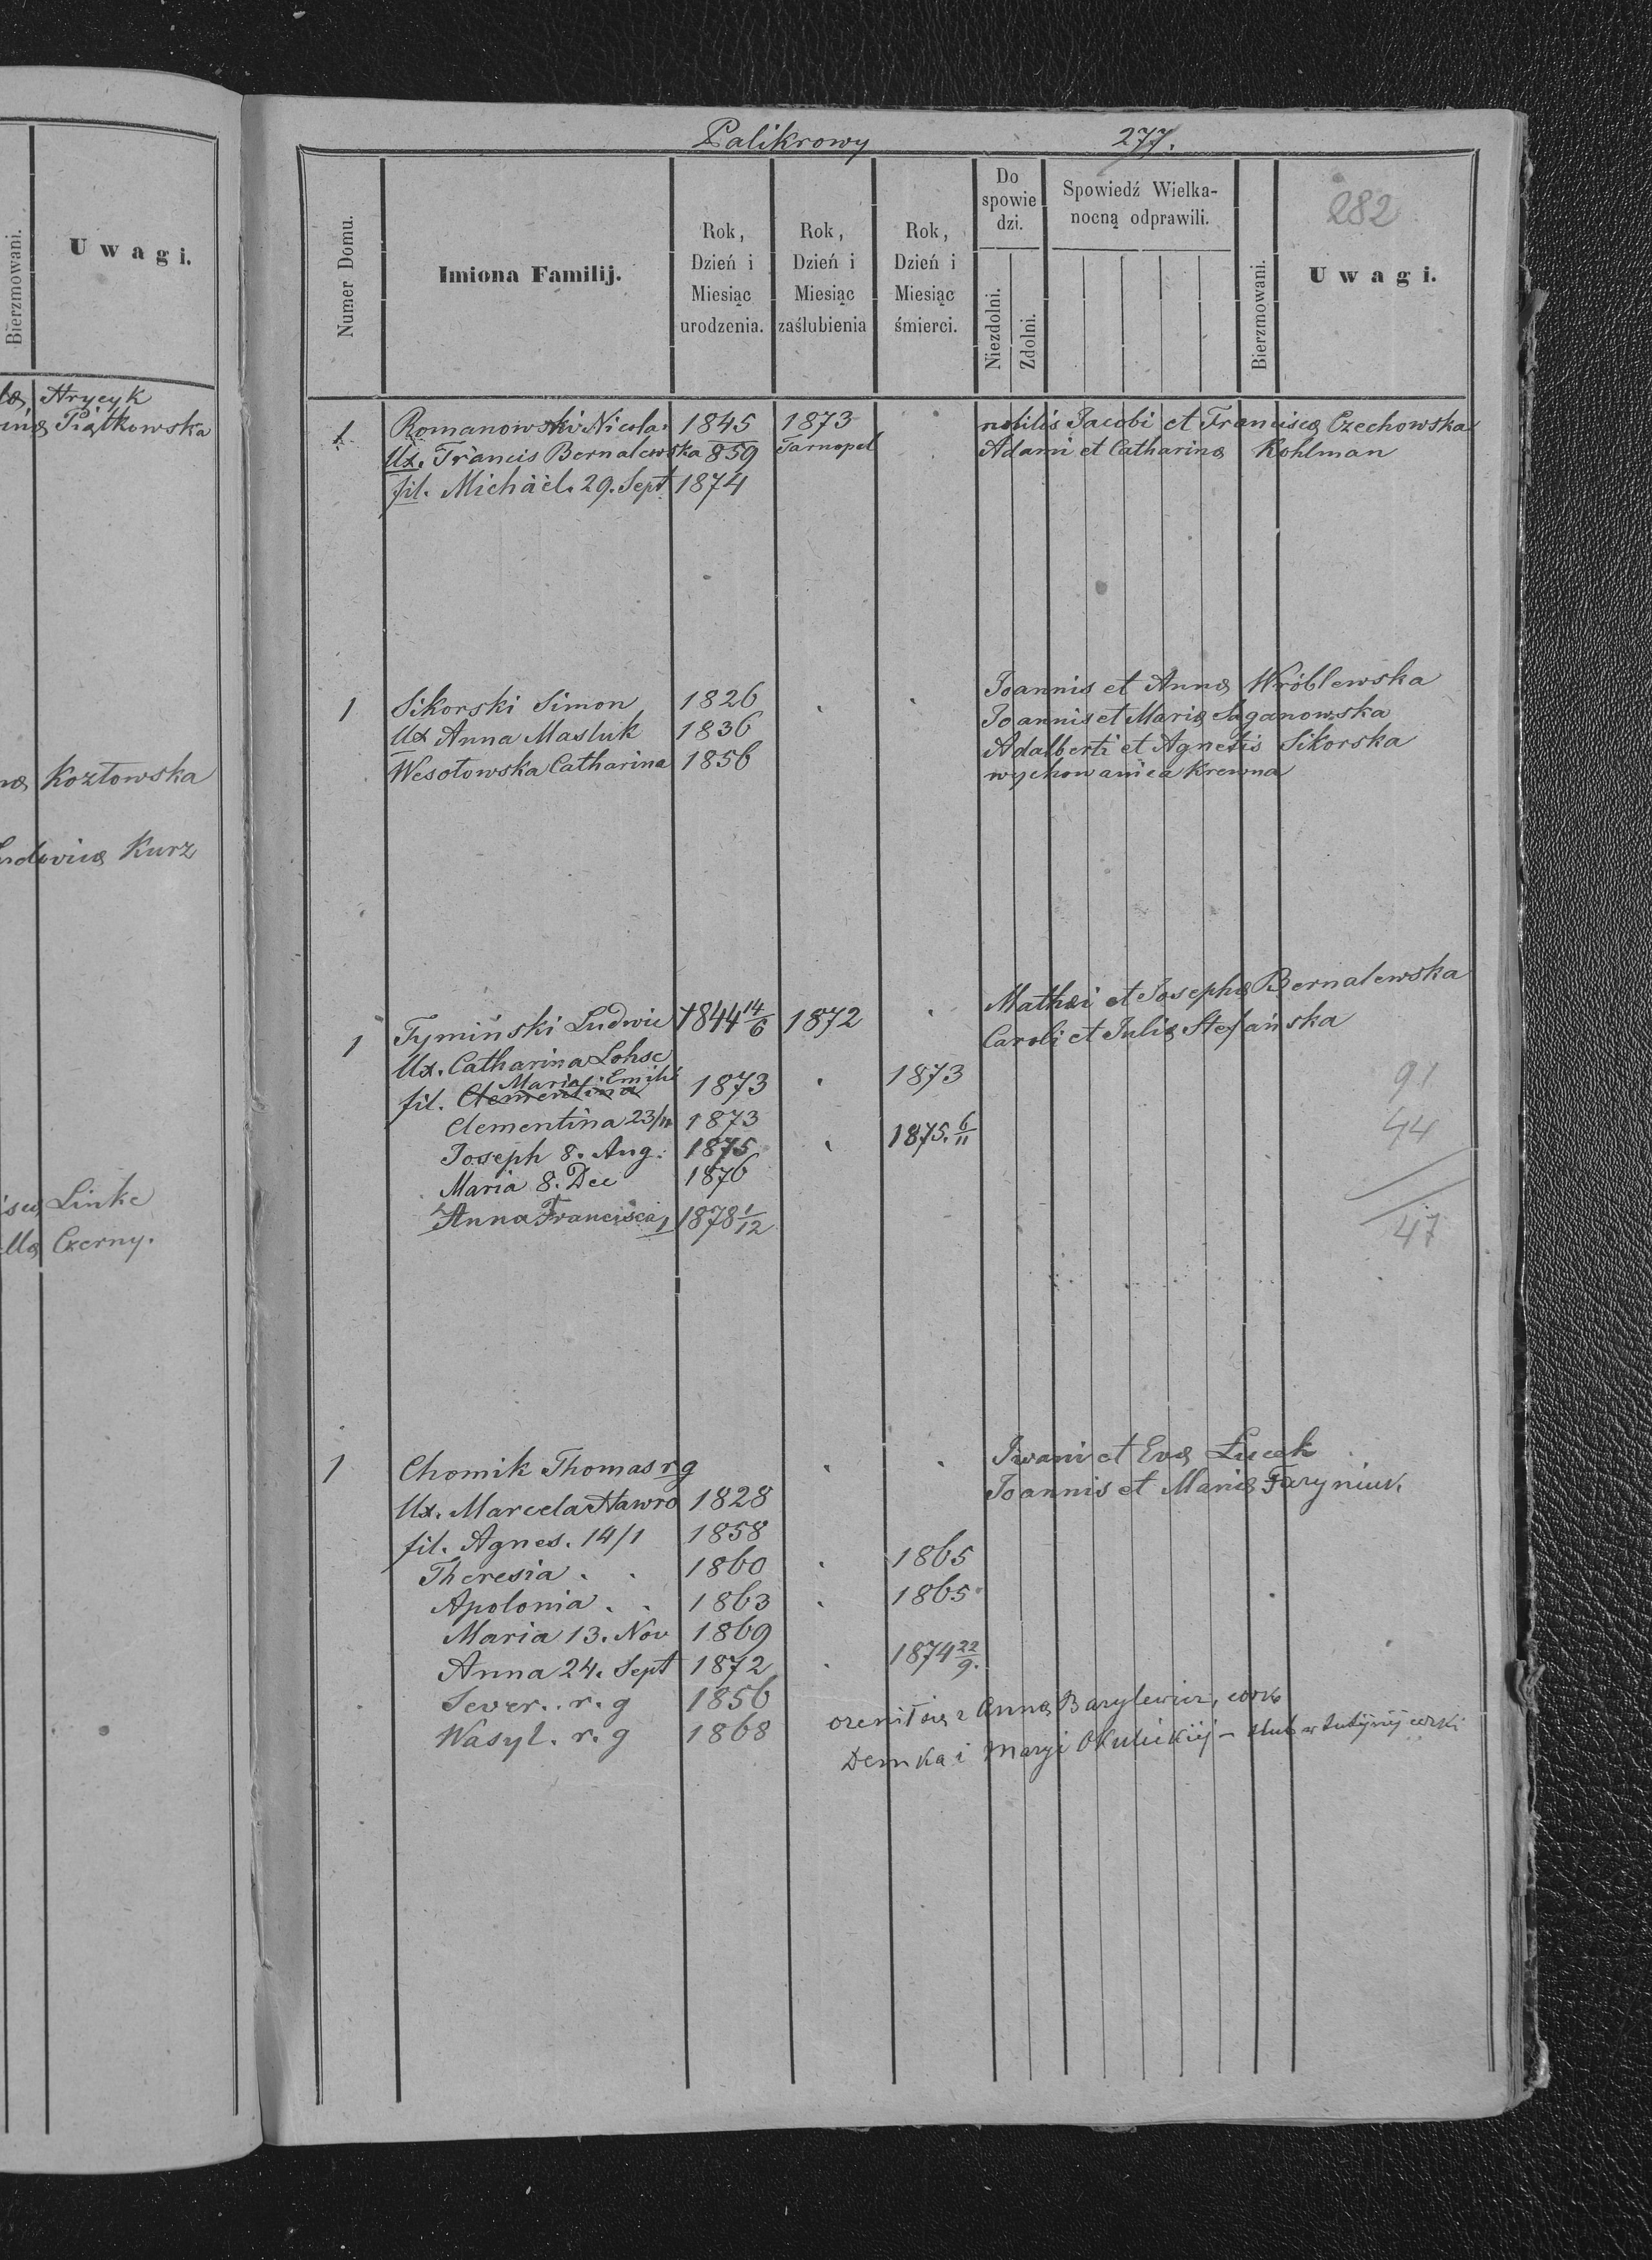 Bierzmowani.
Uwagi.
Hrycyk
Piątkowska
Kozłowska
Kurz
Linke
Czerny.
Palikrowy 277.
282
Numer Domu.
Imiona Familij.
Rok, Dzień i Miesiąc urodzenia.
Rok, Dzień i Miesiąc zaślubienia
Rok, Dzień i Miesiąc śmierci.
Do spowie dzi.
Niezdolni.
Zdolni.
Spowiedź Wielka-
nocną odprawili.
Bierzmowani.
Uwagi.
1 Romanowski Nicola. 1845 1873 nobilis Jacobi et Franciscæ Czechowska
Ux. Francis Bernalewska 859 Tarnopol Adami et Catharinæ Kohlman
fil. Michäel. 29. Sept 1874
1 Sikorski Simon 1826 Joannis et Annæ Wróblewska
Ux Anna Masluk 1836 Joannis et Mariæ Saganowska
Wesołowska Catharina 1856 Adalberti et Agnetis Sikorska
wychowanica Krewna
1 Tymiński Ludwic 1844 14/6 1872 Mathæi et Josephæ Bernalewska
Ux. Catharina Lohse Caroli et Juliæ Stefańska
fil. Clementina Maria Emili 1873 1873
Clementina 23/11 1873
Joseph 8. Aug. 1875 1875. 6/11
Maria 8. Dec 1876
Anna Francisca 1878 1/12
91
44
47
1 Chomik Thomas r g Iwani et Evæ Łucek
Ux. Marcela Hawro 1828 Joannis et Mariæ Faryniuk.
fil. Agnes. 14/1 1858
Theresia . . 1860 1865
Apolonia . . 1863 1865
Maria 13. Nov 1869
Anna 24. Sept 1872 1874 22/9.
Sever. r. g 1856 ożenił się z Anną Barylewicz, córk
Wasyl. r. g 1868 Demka i Maryi Okulickiej – ślub w tutejszej